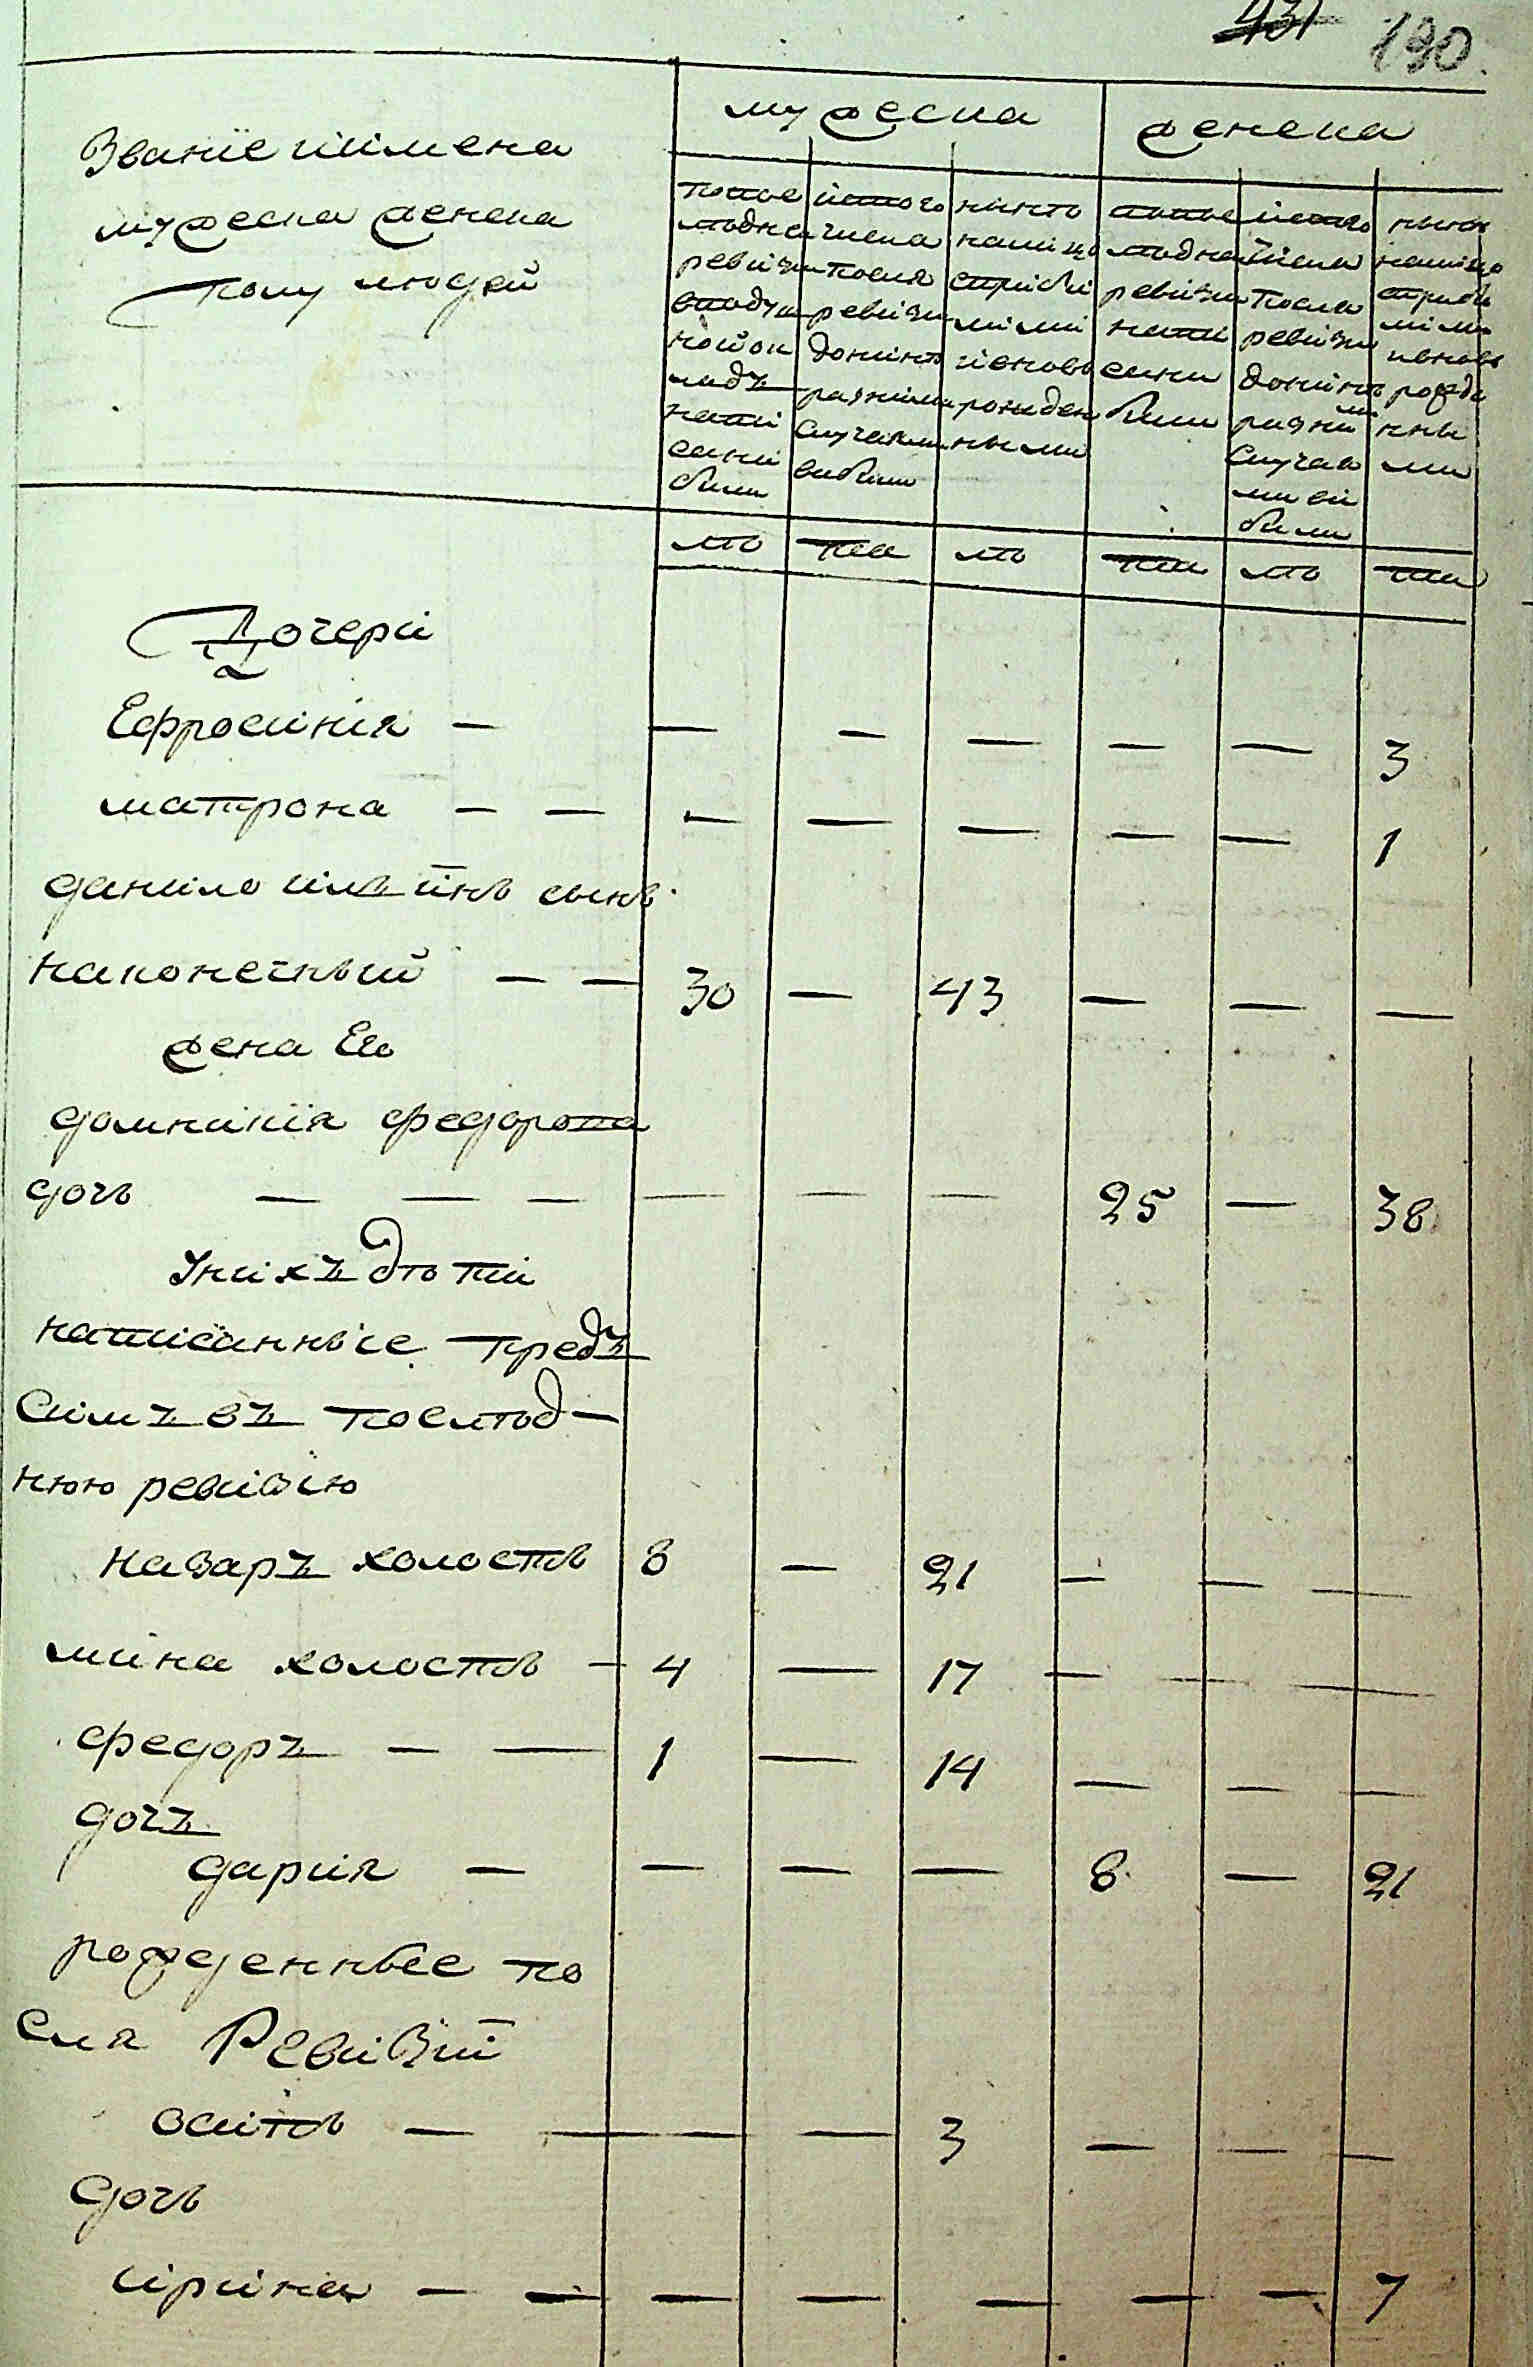 431 190.
Званiе иимена
мужеска женска
полу людей
мужеска
женска
попос
лѣдне
ревизи
вподу
номок
ладъ
напи
сани
били
истого
числа
посля
ревизи
донинѣ
разними
случаями
вибили
нинѣ
налицо
сприби
лими
иеновь
рожден
ными
попос
лѣдне
ревизи
напи
сани
били
истого
числа
посля
ревизи
донинѣ
разни
ми
случая
ми ви
били
нинѣ
налицо
сприби
лими
ивновь
рожде
нны
ми
лѣ
та
лѣ
та
лѣ
та
Дочери
2
Ефросинiя — — — — — — 3
матрона — — — — — — — 1
данило илъинъ сынъ
наконечный — — 30 — 43 — — —
жена Ею
домникiя федорова
дочь — — — — — — 25 — 38
Унихъ дѣти
написанныiе предъ
Симъ въ послѣд—
нюю ревизiю
назаръ холостъ 8 — 21 — — —
мина холостъ — 4 — 17 — — —
федоръ — — 1 — 14 — — —
дочъ
дария — — — — 8 — 21
рожденные по
сля Ревизiй
осипъ — — — — 3 — — —
дочь
ирина — — — — — — — 7